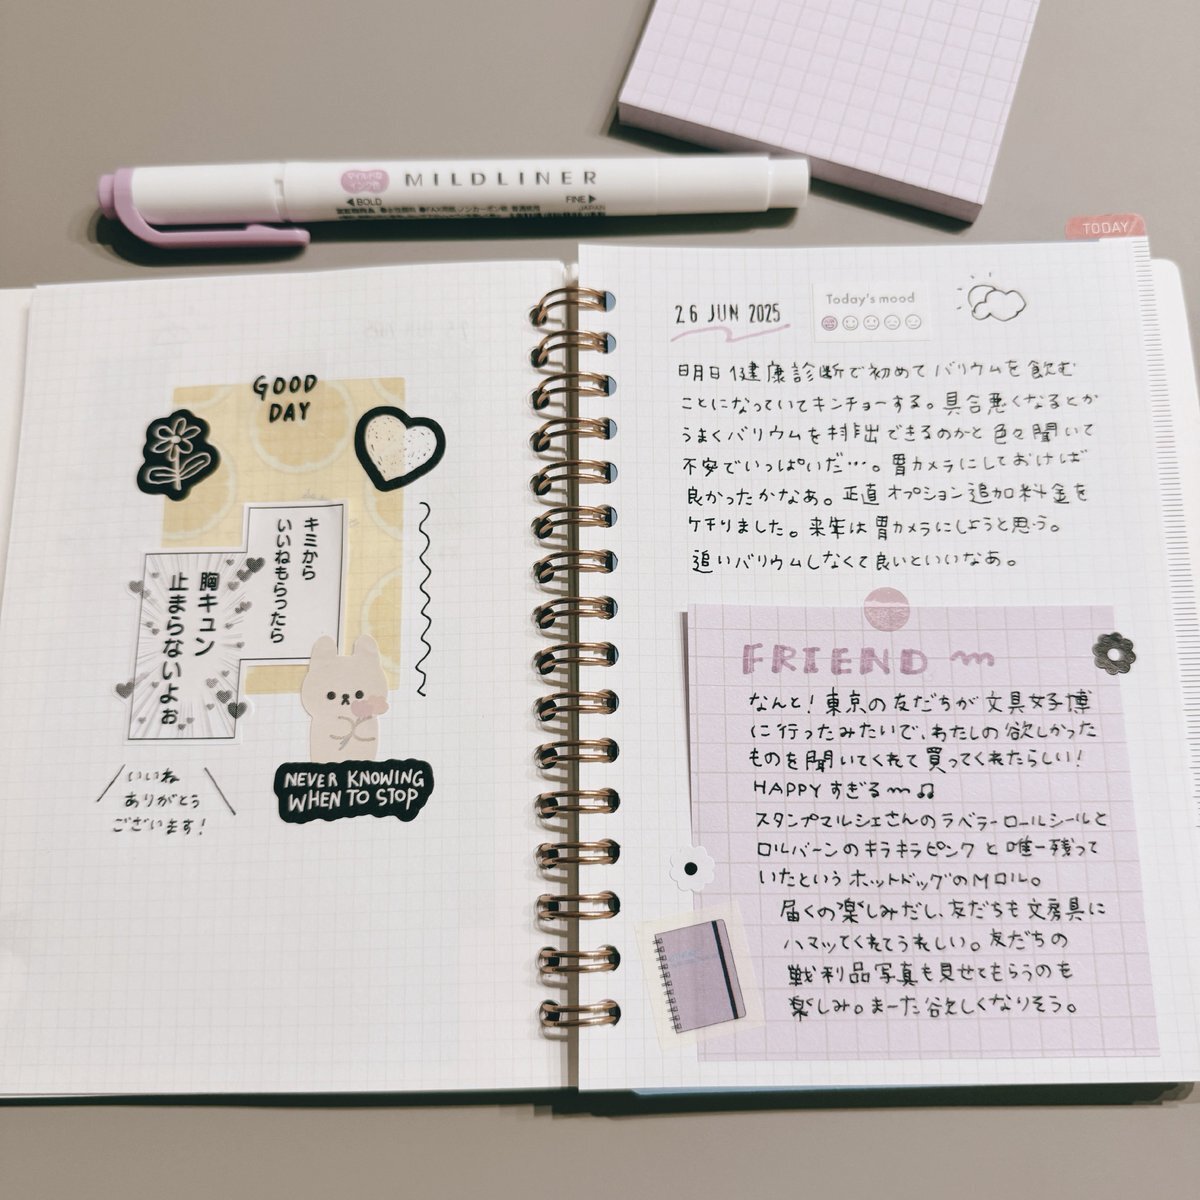 マイルドな
インク色
MILDLINER
◀BOLD
FINE▶
TODAY
GOOD
DAY
キミから
いいねもらったら
胸キュン
止まらないよぉ
NEVER KNOWING
WHEN TO STOP
いいね
ありがとう
ございます!
26 JUN 2025
Today's mood
明日健康診断で初めてバリウムを飲む
ことになっていてキンチョーする。具合悪くなるとか
うまくバリウムを排出できるのかと色々聞いて
不安でいっぱいだ…。胃カメラにしておけば
良かったかなあ。正直オプション追加料金を
ケチりました。来年は胃カメラにしようと思う。
追いバリウムしなくて良いといいなあ。
FRIEND
なんと!東京の友だちが文具女子博
に行ったみたいで、わたしの欲しかった
ものを聞いてくれて買ってくれたらしい!
HAPPYすぎる〰♫
スタンプマルシェさんのラベラーロールシールと
ロルバーンのキラキラピンクと唯一残って
いたというホットドッグのMロル。
届くの楽しみだし、友だちも文房具に
ハマッてくれてうれしい。友だちの
戦利品写真も見せてもらうのを
楽しみ。まーた欲しくなりそう。